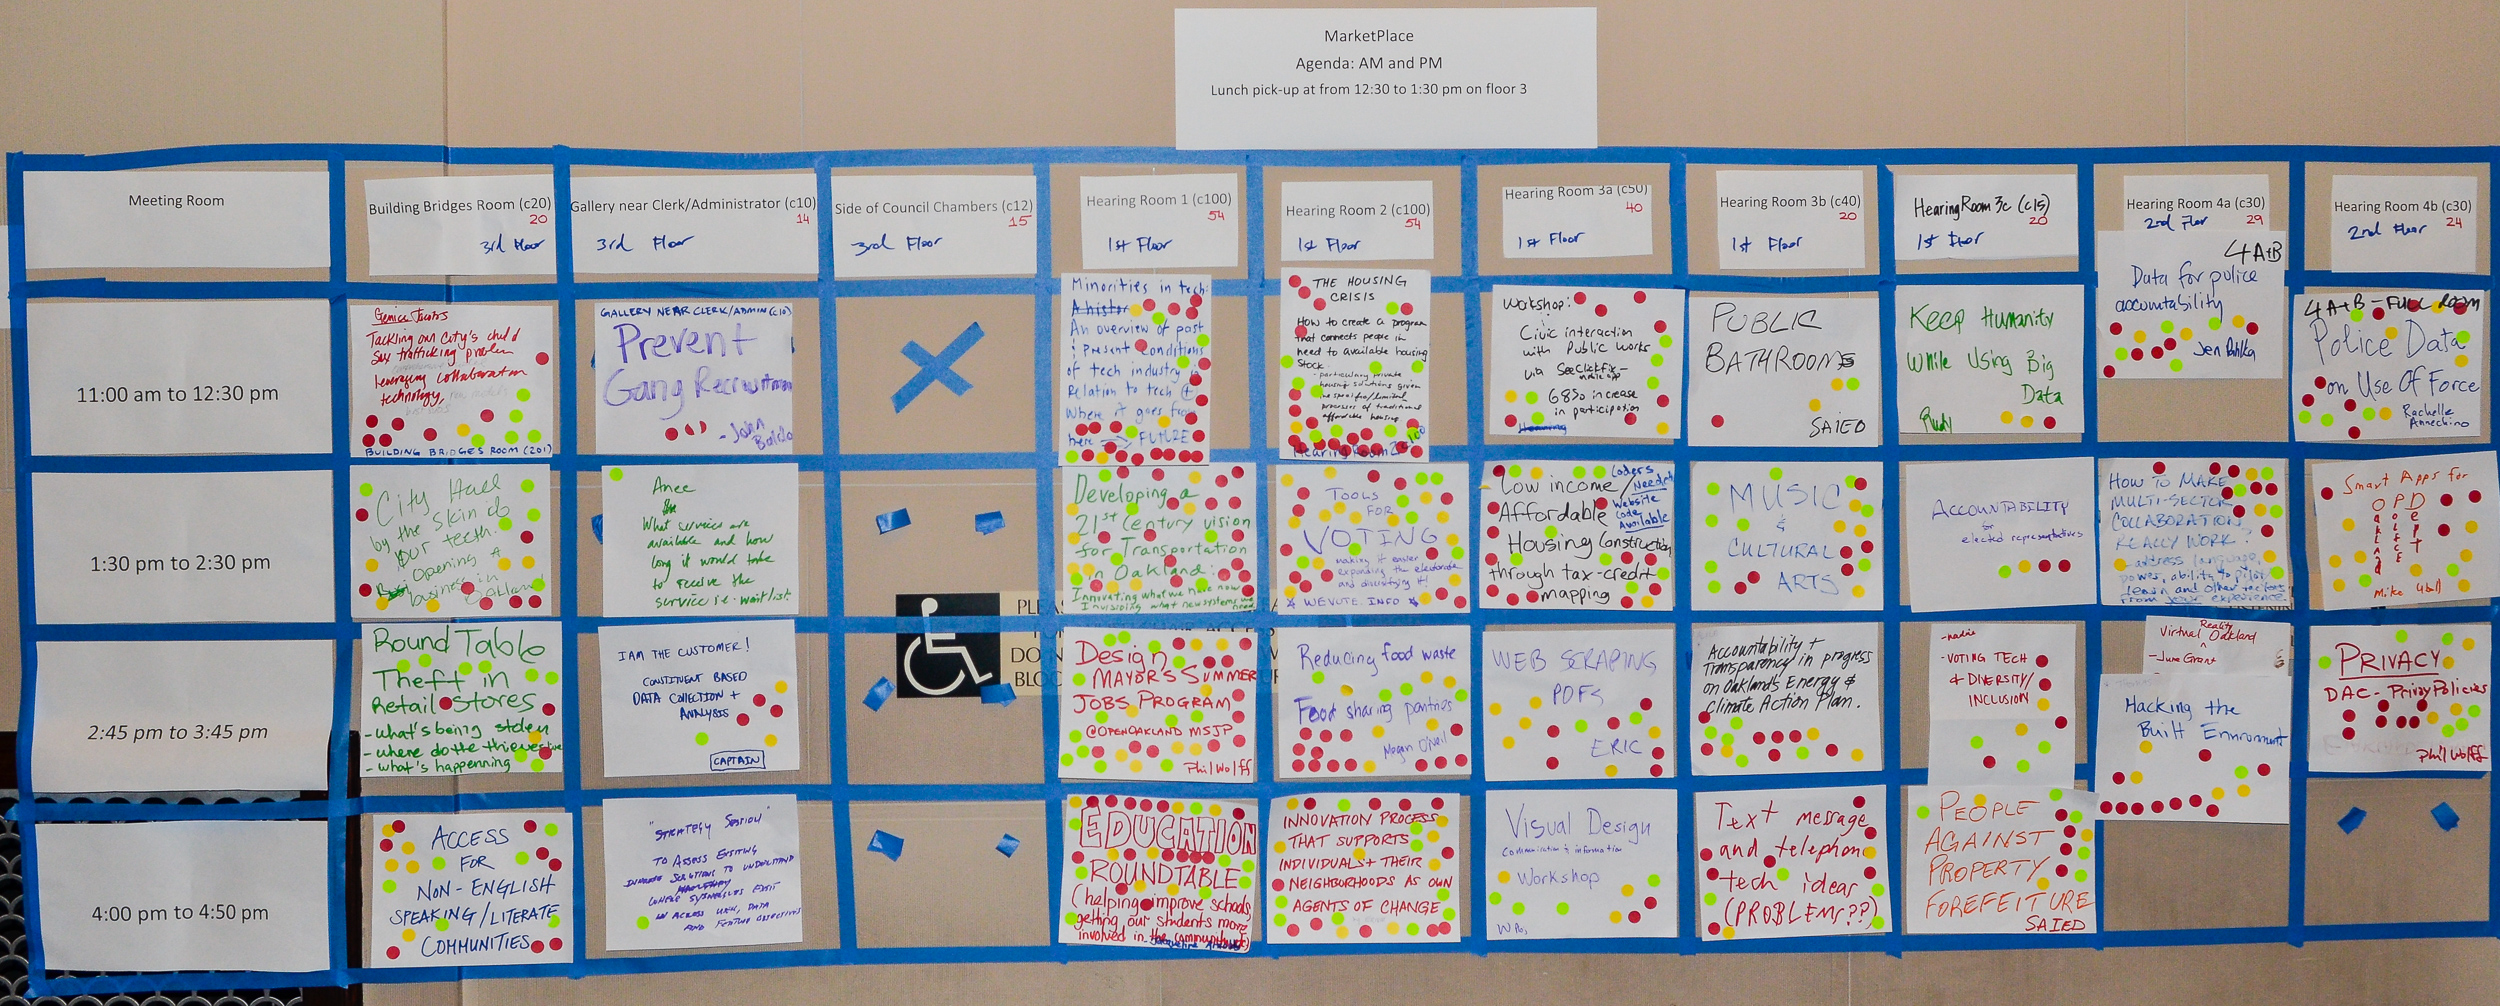 MarketPlace
Agenda: AM and PM
Lunch pick-up at from 12:30 to 1:30 pm on floor 3
Meeting Room
Building Bridges Room (c20)
20
3rd Floor
Gallery near Clerk/Administrator (c10)
14
3rd Floor
Side of Council Chambers (c12)
15
3rd Floor
Hearing Room 1 (c100)
54
1st Floor
Hearing Room 2 (c100)
54
1st Floor
Hearing Room 3a (c50)
40
1st Floor
Hearing Room 3b (c40)
20
1st Floor
Hearing Room 3c (c15)
20
1st Floor
Hearing Room 4a (c30)
2nd Flor 29
Hearing Room 4b (c30)
2nd Flour 24
11:00 am to 12:30 pm
Genice Jacobs
Tackling our City's child
Sex trafficking problem
leveraging collaboration
technology,
BUILDING BRIDGES ROOM (201)
GALLERY NEAR CLERK/ADMIN (c10)
Prevent
Gang Recruitment
- John
Minorities in tech:
An overview of past
& present conditions
of tech industry in
Relation to tech &
Where it goes from
here → FUTURE
THE HOUSING
CRISIS
How to create a program
that connects people in
need to available housing
stock
Hearing Room 2
Workshop:
Civic interaction
with Public Works
via SeeClickFix-
mobile app
68% increase
in participation
PUBLIC
BATHROOMS
SAIED
Keep Humanity
While Using Big
Data
Rudy
4A+B
Data for police
accountability
Jen Pahlka
4A+B - FULL ROOM
Police Data
on Use Of Force
Rachelle
Annechino
1:30 pm to 2:30 pm
City Hall
by the skin of
your teeth.
Opening a
business in
Oakland
Anee
What services are
available and how
long it would take
to receive the
service i.e. waitlist.
Developing a
21st Century vision
for Transportation
in Oakland:
Innovating what we have now
Envisioning what new systems we
need
TOOLS
FOR
VOTING
making it easier
expanding the electorate
and diversifying it!
WEVOTE.INFO
Low income /
Affordable
Housing Construction
through tax-credit
mapping
Coders
Needed
Website
Code
Available
MUSIC
&
CULTURAL
ARTS
ACCOUNTABILITY
for
elected representatives
HOW TO MAKE
MULTI-SECTOR
COLLABORATION
REALLY WORK?
- address language,
power, ability to pilot/
learn and other factors
from your experience.
Smart Apps for
OPD
Mike Ubell
2:45 pm to 3:45 pm
Round Table
Theft in
Retail Stores
- what's being stolen
- where do the thieves live
- what's happenning
I AM THE CUSTOMER!
CONSTITUENT BASED
DATA COLLECTION +
ANALYSIS
CAPTAIN
Design
MAYOR'S SUMMER
JOBS PROGRAM
@OPENOAKLAND MSJP
Phil Wolff
Reducing food waste
Food sharing pantries
Megan O'Neil
WEB SCRAPING
PDFs
ERIC
Accountability +
Transparency in progress
on Oakland's Energy &
Climate Action Plan.
- nadine
- VOTING TECH
& DIVERSITY/
INCLUSION
Reality
Virtual ^ Oakland
- June Grant
Hacking the
Built Environment
PRIVACY
DAC - Privacy Policies
Phil Wolff
4:00 pm to 4:50 pm
ACCESS
FOR
NON-ENGLISH
SPEAKING/LITERATE
COMMUNITIES
"STRATEGY SESSION"
TO ASSESS EXISTING
EDUCATION
ROUNDTABLE
(helping improve schools,
getting our students more
involved in the community etc)
INNOVATION PROCESS
THAT SUPPORTS
INDIVIDUALS + THEIR
NEIGHBORHOODS AS OWN
AGENTS OF CHANGE
Visual Design
Communication & information
Workshop
Text message
and telephone
tech ideas
(PROBLEMS??)
PEOPLE
AGAINST
PROPERTY
FOREFEITURE
SAIED